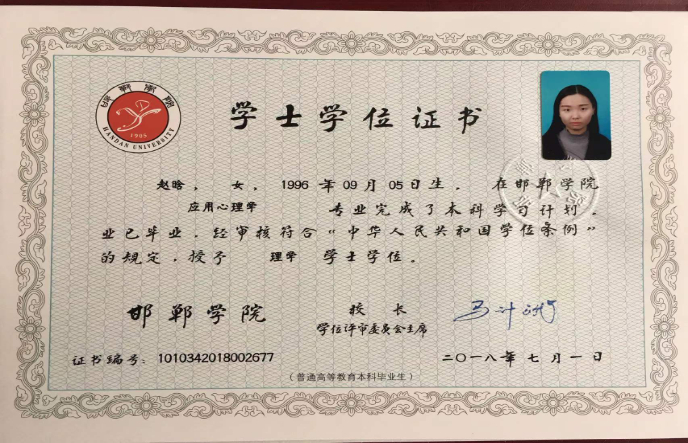 邯郸学院
HANDAN UNIVERSITY
1905
学士学位证书
赵晗，女，1996年09月05日生。在邯郸学院
应用心理学 专业完成了本科学习计划，
业已毕业，经审核符合《中华人民共和国学位条例》
的规定，授予 理学 学士学位。
邯郸学院
校长
学位评审委员会主席
证书编号：1010342018002677
二〇一八年七月一日
（普通高等教育本科毕业生）